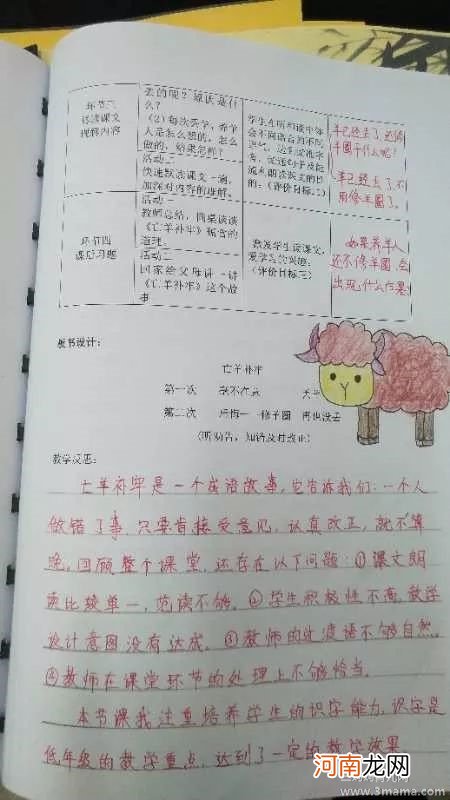 丢的呢？原因是什么？
环节三
研读课文
理解内容
（2）每次丢羊，养羊人是怎么想的，怎么做的，结果怎样？
活动二
快速默读课文一遍，加深对内容的理解。
羊已经丢了，还修
羊圈干什么呢？
羊已经丢了，不
用修羊圈了。
环节四
课后习题
活动一
教师总结，同桌谈谈
《亡羊补牢》蕴含的
道理。
活动二
回家给父母讲一讲
《亡羊补牢》这个故
事
激发学生读课文，
（评价目标三）
如果养羊人
还不修羊圈，会
出现什么后果
板书设计：
亡羊补牢
第一次 丢羊
第二次 后悔 修羊圈 再也没丢
（听劝告，知错及时改正）
教学反思：
亡羊补牢是一个成语故事，它告诉我们：一个人
做错了事，只要肯接受意见，认真改正，就不算
晚。回顾整个课堂，还存在以下问题：①课文朗
读比较单一，范读不够。②学生积极性不高，教学
设计意图没有达成。③教师的过渡语不够自然。
④教师在课堂环节的处理上不够恰当。
本节课我注重培养学生的识字能力，识字是
低年级的教学重点，达到了一定的教学效果
河南龙网
www.3mama.com